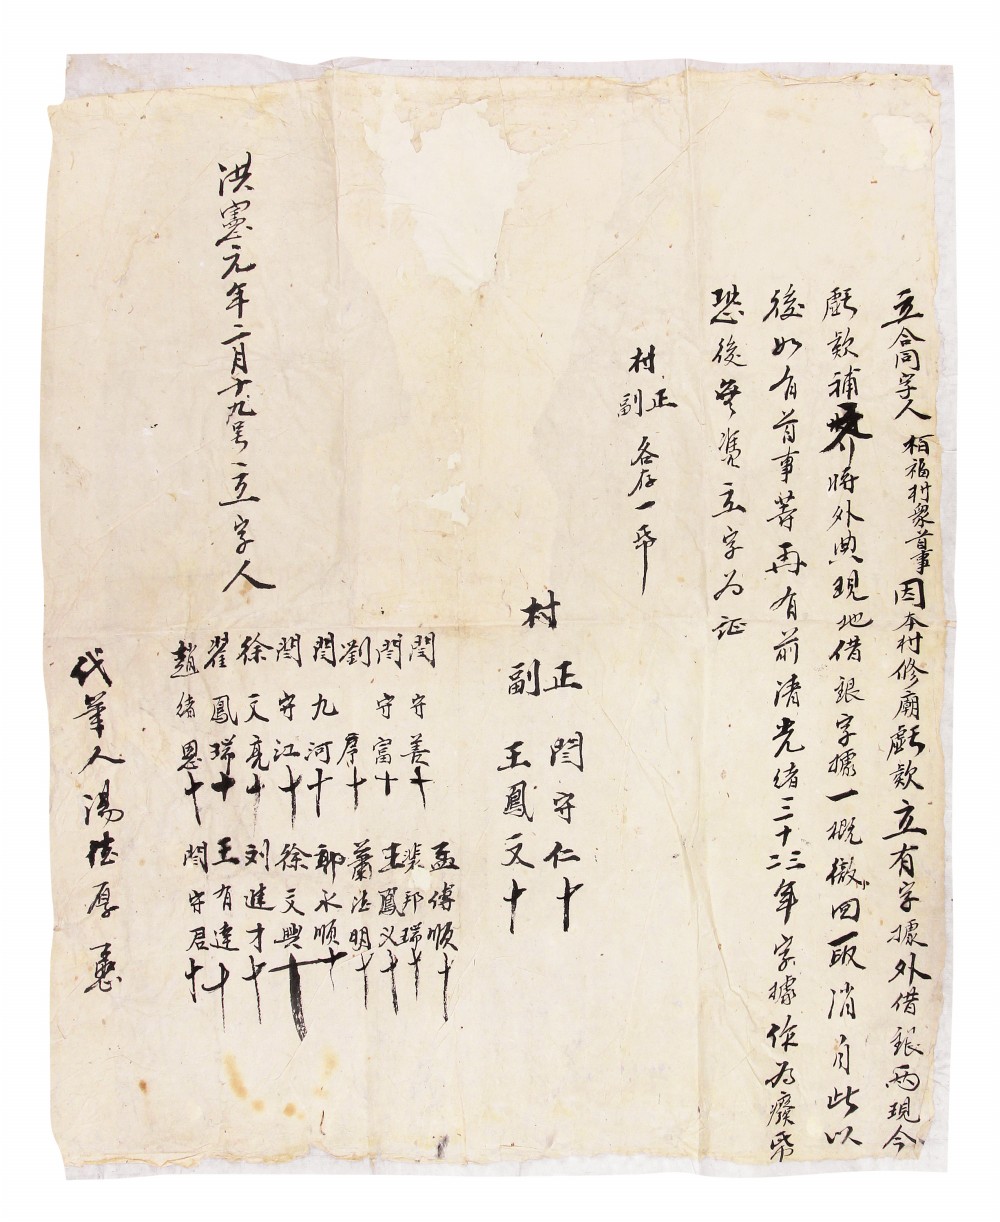 立合同字人柏福村衆首事因本村修廟虧欵立有字據外借銀両現今
虧欵補齊將外典現地借銀字據一概徼回取消自此以
後如有首事等再有前清光緒三十二三年字據作為癈帋
恐後無凴立字为証
村正副各存一帋
村正閆守仁十
副王鳳文十
閆守善十 孟傅順十
閆守富十 裴邦瑞十
劉序十 王鳳义十
閆九河十 蕭法明十
閆守江十 郭永順十
徐文亮十 徐文興十
翟鳳瑞十 刘進才十
趙緒恩十 王有達十
閆守君十
洪憲元年二月十九号立字人
代筆人湯德厚